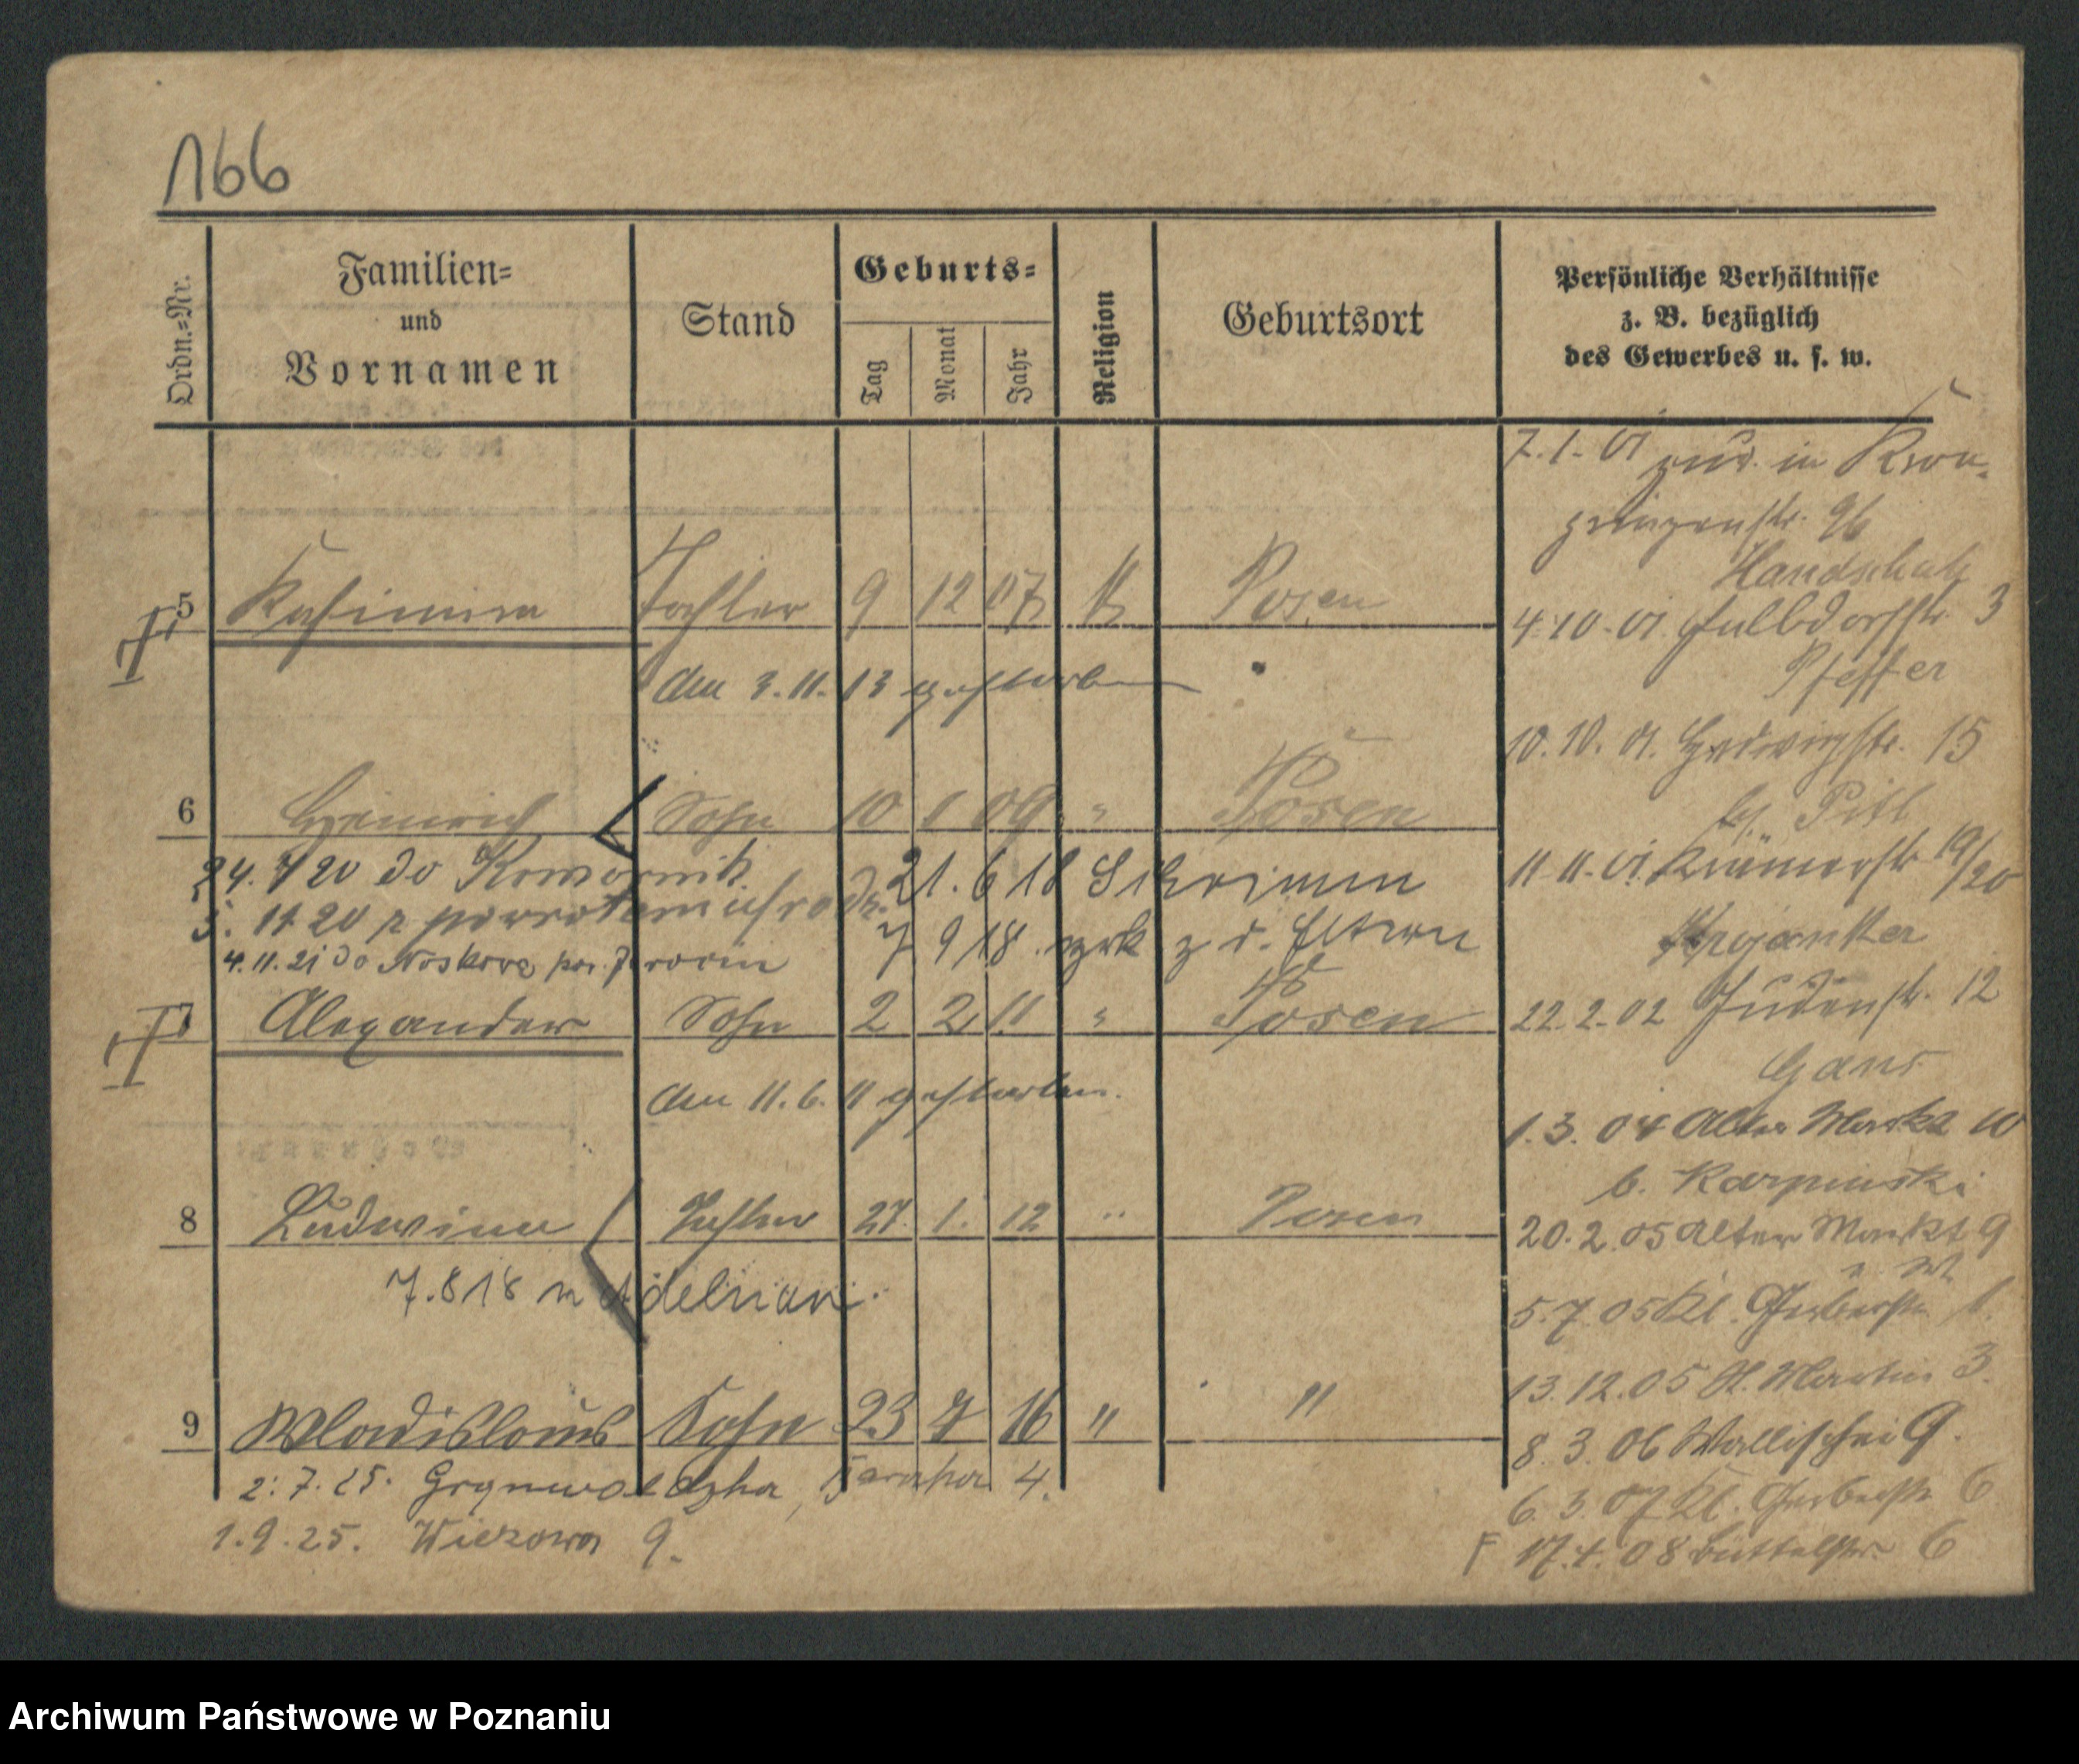 166
Ordn.-Nr.
Familien-
und
Vornamen
Stand
Geburts-
Tag
Monat
Jahr
Religion
Geburtsort
Persönliche Verhältnisse
z. B. bezüglich
des Gewerbes u. s. w.
7.1.01 zur. in Kron-
prinzenstr. 96
Handschuh
5 Kasimira Tochter 9 12 07 K Posen
4.10.01. 3
Pfeffer
den 3.11.13 gestorben
10.10.01. Hedwigstr. 15
b. Pitt
6 Heinrich Sohn 10 1 09 " Posen
11.11.01. Krämerstr. 19/20
24. 7 20 do Komornik
21.6 18 Schrimm
5. 11 20 z powrotem
7 9 18 zrk z d. Eltern
Krojanker
4.11.21 do Noskowa pow. Jarocin
7 Alexander Sohn 2 2 11 " Posen
22.2.02 Judenstr. 12
Gans
den 11.6.11 gestorben.
1.3.04 Alter Markt 10
b. Karpinski
8 Ludwina Tochter 27. 1. 12 " Posen
20.2.05 Alter Markt 9
7.8 18 n Adelnau.
5.7.05 Kl. Gerberstr. 1.
13.12.05 St. Martin 3.
9 Wladislaus Sohn 23 7 16 " "
8.3.06 Wallischei 9.
2.7.25. Grynwaldzka, Baraka 4.
6.3.07 Kl. Gerberstr. 6
1.9.25. Wiezowa 9.
F 17.4.08 Büttelstr. 6
Archiwum Państwowe w Poznaniu